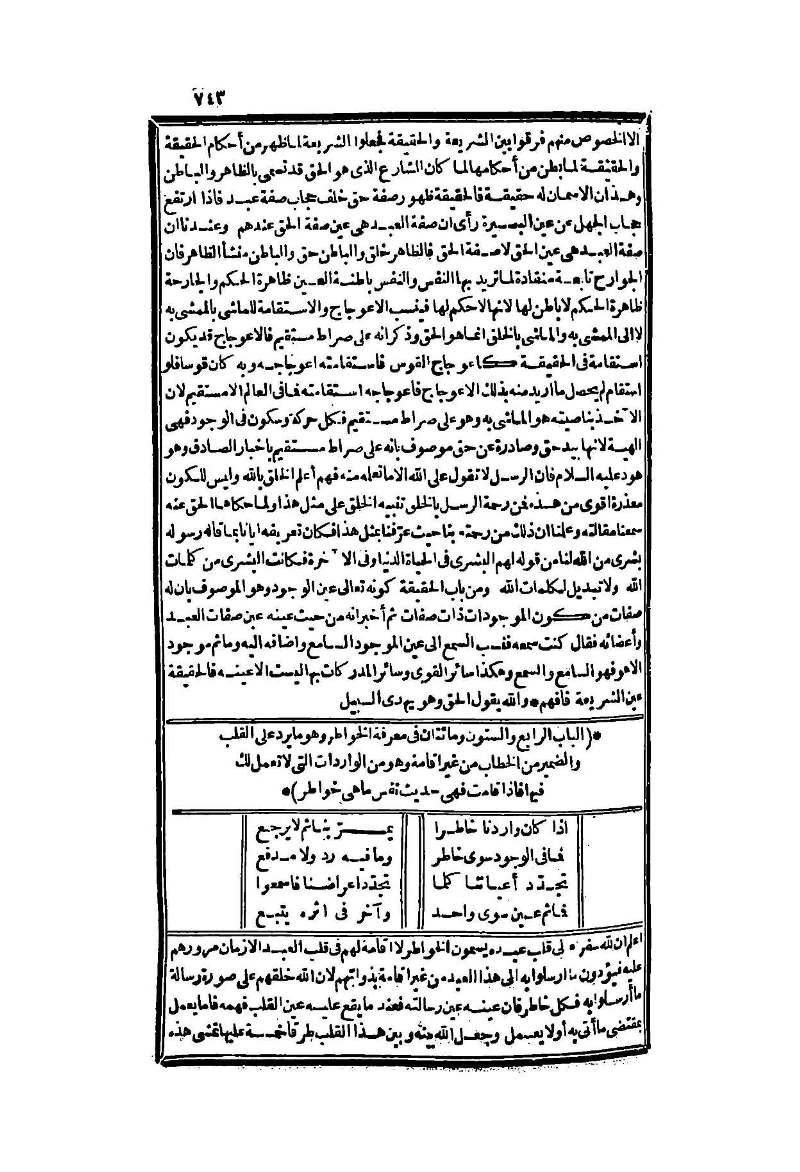 ٧٤٣
الا الخصوص منهم فرقوا بين الشريعة والحقيقة فجعلوا الشريعة لما ظهر من أحكام الحقيقة
والحقيقة لما بطن من أحكامها لما كان الشارع الذى هو الحق قد تسمى بالظاهر والباطن
وهذان الاسمان له حقيقة فالحقيقة ظهور صفة حق خلف حجاب صفة عبد فاذا ارتفع
حجاب الجهل عن عين البصيرة رأى ان صفة العبد هى عين صفة الحق عندهم وعندنا ان
صفة العبد هى عين الحق لا صفة الحق فالظاهر خلق والباطن حق والباطن منشأ الظاهر فان
الجوارح تابعة منقادة لما تريد بها النفس والنفس باطنة العين ظاهرة الحكم والجارحة
ظاهرة الحكم لا باطن لها لانها لا حكم لها فينسب الاعوجاج والاستقامة للماشى بالممشى به
لا الى الممشى به والماشى بالخلق انما هو الحق وذكر انه على صراط مستقيم فالاعوجاج قد يكون
استقامة فى الحقيقة كاعوجاج القوس فاستقامته اعوجاجه وبه كان قوسا فلو
استقام لم يحصل ما أريد منه بذلك الاعوجاج فاعوجاجه استقامته فما فى العالم الا مستقيم لان
الآخذ بناصيته هو الماشى به وهو على صراط مستقيم فكل حركة وسكون فى الوجود فهى
الهية لانها بيد حق وصادرة عن حق موصوف بانه على صراط مستقيم باخبار الصادق وهو
هود عليه السلام فان الرسل لا تقول على الله الا ما تعلمه منه فهم أعلم الخلق بالله وليس للكون
معذرة اقوى من هذه فمن رحمة الرسل بالخلق تنبيه الخلق على مثل هذا ولما حكاها الحق عنه
سمعنا مقالته وعلمنا ان ذلك من رحمته بنا حيث عرّفنا بمثل هذا فكان تعريفه ايانا بما قاله رسوله
بشرى من الله لنا من قوله لهم البشرى فى الحياة الدنيا وفى الآخرة فكانت البشرى من كلمات
الله ولا تبديل لكلمات الله ومن باب الحقيقة كونه تعالى عين الوجود وهو الموصوف بان له
صفات من كون الموجودات ذات صفات ثم أخبر انه من حيث عينه عين صفات العبد
وأعضائه فقال كنت سمعه فنسب السمع الى عين الموجود السامع واضافه اليه وما ثم موجود
الا هو فهو السامع والسمع وهكذا سائر القوى وسائر المدركات بها ليست الا عينه فالحقيقة
عين الشريعة فافهم * والله يقول الحق وهو يهدى السبيل
*(الباب الرابع والستون ومائتان فى معرفة الخواطر وهو ما يرد على القلب
والضمير من الخطاب من غير اقامة وهو من الواردات التى لا تعمل لك
فيها فاذا قامت فهى حديث نفس ما هى خواطر)*
اذا كان واردنا خاطرا يمـرّ بنا ثم لا يرجع
فما فى الوجود سوى خاطر وما فيه رد ولا مدفع
تجدّد أعياننا كلما تجدّد اعراضنا فاسمعوا
فما ثم عين سوى واحد وآخر فى اثره يتبع
اعلم ان لله سفراء الى قلب عبده يسمون الخواطر لا اقامة لهم فى قلب العبد الا زمان مرورهم
عليه فيؤدون ما ارسلوا به الى هذا العبد من غير اقامة بذواتهم لان الله خلقهم على صورة رسالة
ما أرسلوا به فكل خاطر فان عينه عين رسالته فعند ما يقع عليه عين القلب فهمه فاما يعمل
بمقتضى ما أتى به أو لا يعمل وجعل الله بينه وبين هذا القلب طرقا خمسة عليها تمشى هذه